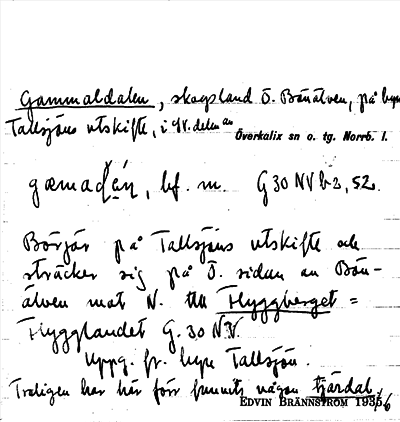 Gammaldalen, skogsland Ö. Bönälven, på byn
Tallsjöns utskifte, i NV. delen av
Överkalix sn o. tg. Norrb. l.
bf. m. G 30 NV b 3, 52.
Börjar på Tallsjöns utskifte och
sträcker sig på Ö. sidan av Bön-
älven mot N. till Flyggberget =
Flygglandet G. 30 NV.
Uppg. fr. byn Tallsjön.
Troligen har här förr funnits någon tjärdal.
EDVIN BRÄNNSTRÖM 1935